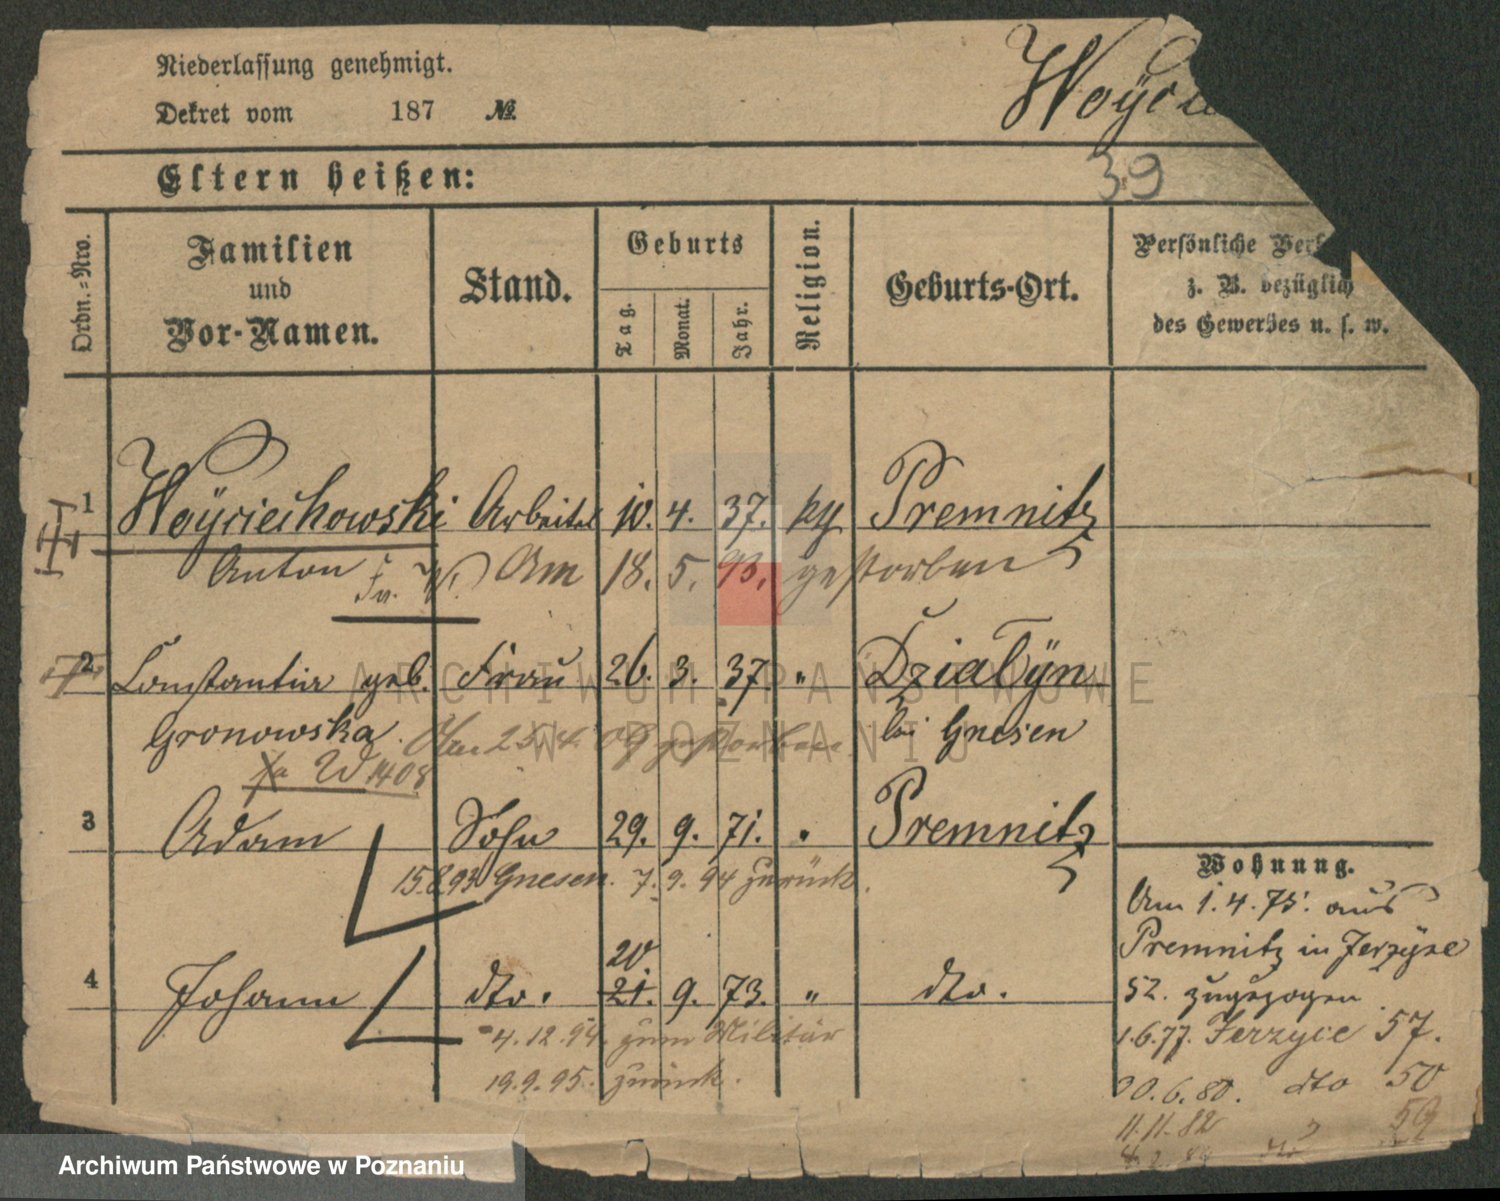 Niederlassung genehmigt.
Dekret vom 187 No.
Woyci
39
Eltern heißen:
Ordn.-Nro.
Familien
und
Vor-Namen.
Stand.
Geburts
Tag.
Monat.
Jahr.
Religion.
Geburts-Ort.
Persönliche Ver
z. B. bezüglich
des Gewerbes u. s. w.
1 Woÿciechowski Arbeiter 10. 4. 37. kg Premnitz
Anton Am 18. 5. 93. gestorben
2 Constantia geb. Frau 26. 3. 37. " Dzialÿn
Gronowska. bei Gnesen
Am 25. 4. 08 gestorben
W 1408
3 Adam Sohn 29. 9. 71. " Premnitz
15.8.93 Gnesen. 7. 9. 94 zurück.
20
4 Johann dto. 21. 9. 73. " dto.
4. 12. 94. zum Militär
19. 9. 95. zurück.
Wohnung.
Am 1. 4. 75. aus
Premnitz in Jerzÿce
52. zugezogen
1.6.77. Jerzyce 57.
20. 6. 80. dto 50
11. 11. 82 59
ARCHIWUM PAŃSTWOWE
W POZNANIU
Archiwum Państwowe w Poznaniu